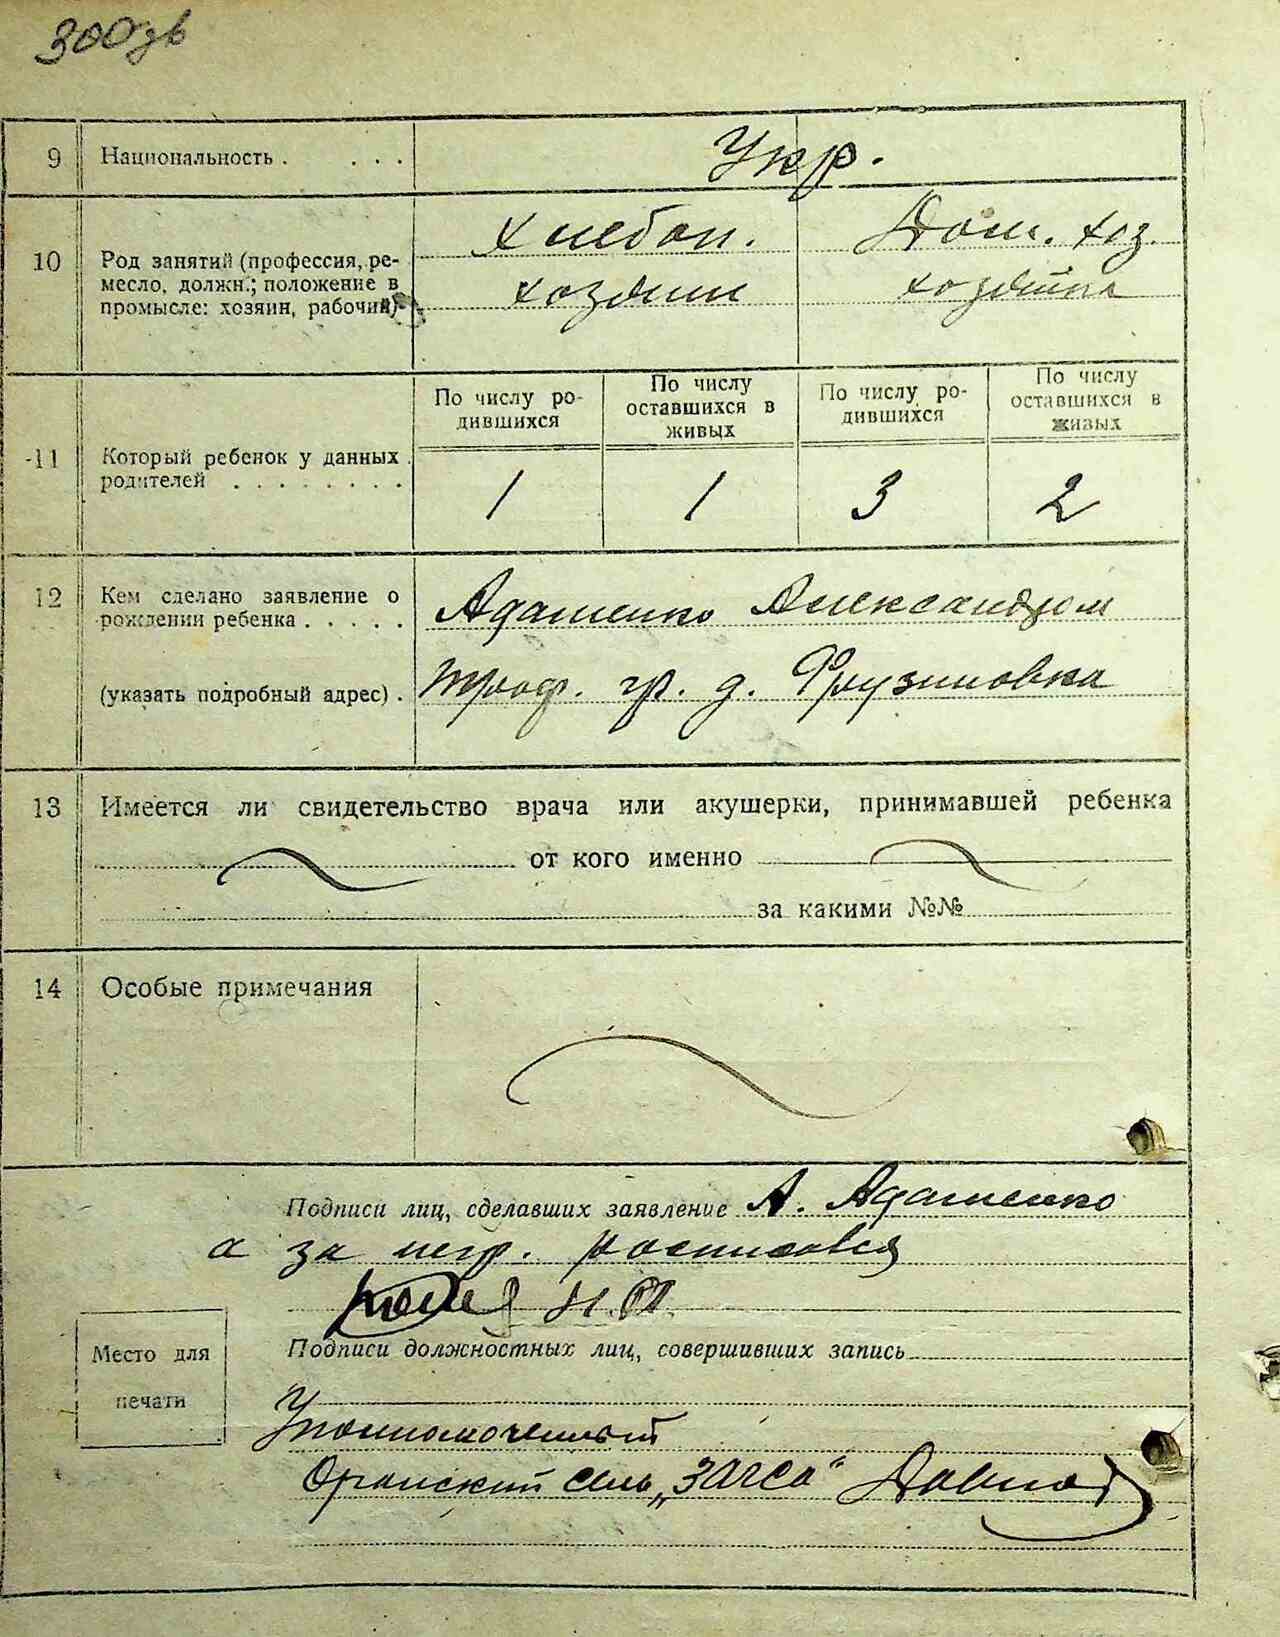 300зв
9 Национальность . . . . Укр.
10 Род занятий (профессия, ре-
месло, должн.; положение в
промысле: хозяин, рабочий)
Хлебоп. Дом. хоз.
хозяин хозяйка
По числу ро-
дившихся
По числу
оставшихся в
живых
По числу ро-
дившихся
По числу
оставшихся в
живых
11 Который ребенок у данных
родителей . . . . . . . .
1 1 3 2
12 Кем сделано заявление о
рождении ребенка . . . . .
Адаменко Александром
(указать подробный адрес) .
гр. д. Фрузиновка
13 Имеется ли свидетельство врача или акушерки, принимавшей ребенка
от кого именно
за какими №№
14 Особые примечания
Подписи лиц, сделавших заявление А. Адаменко
а за негр. росписался
Подписи должностных лиц, совершивших запись
Место для
печати
Уполномоченный
Оранский сель „ЗАГСа“